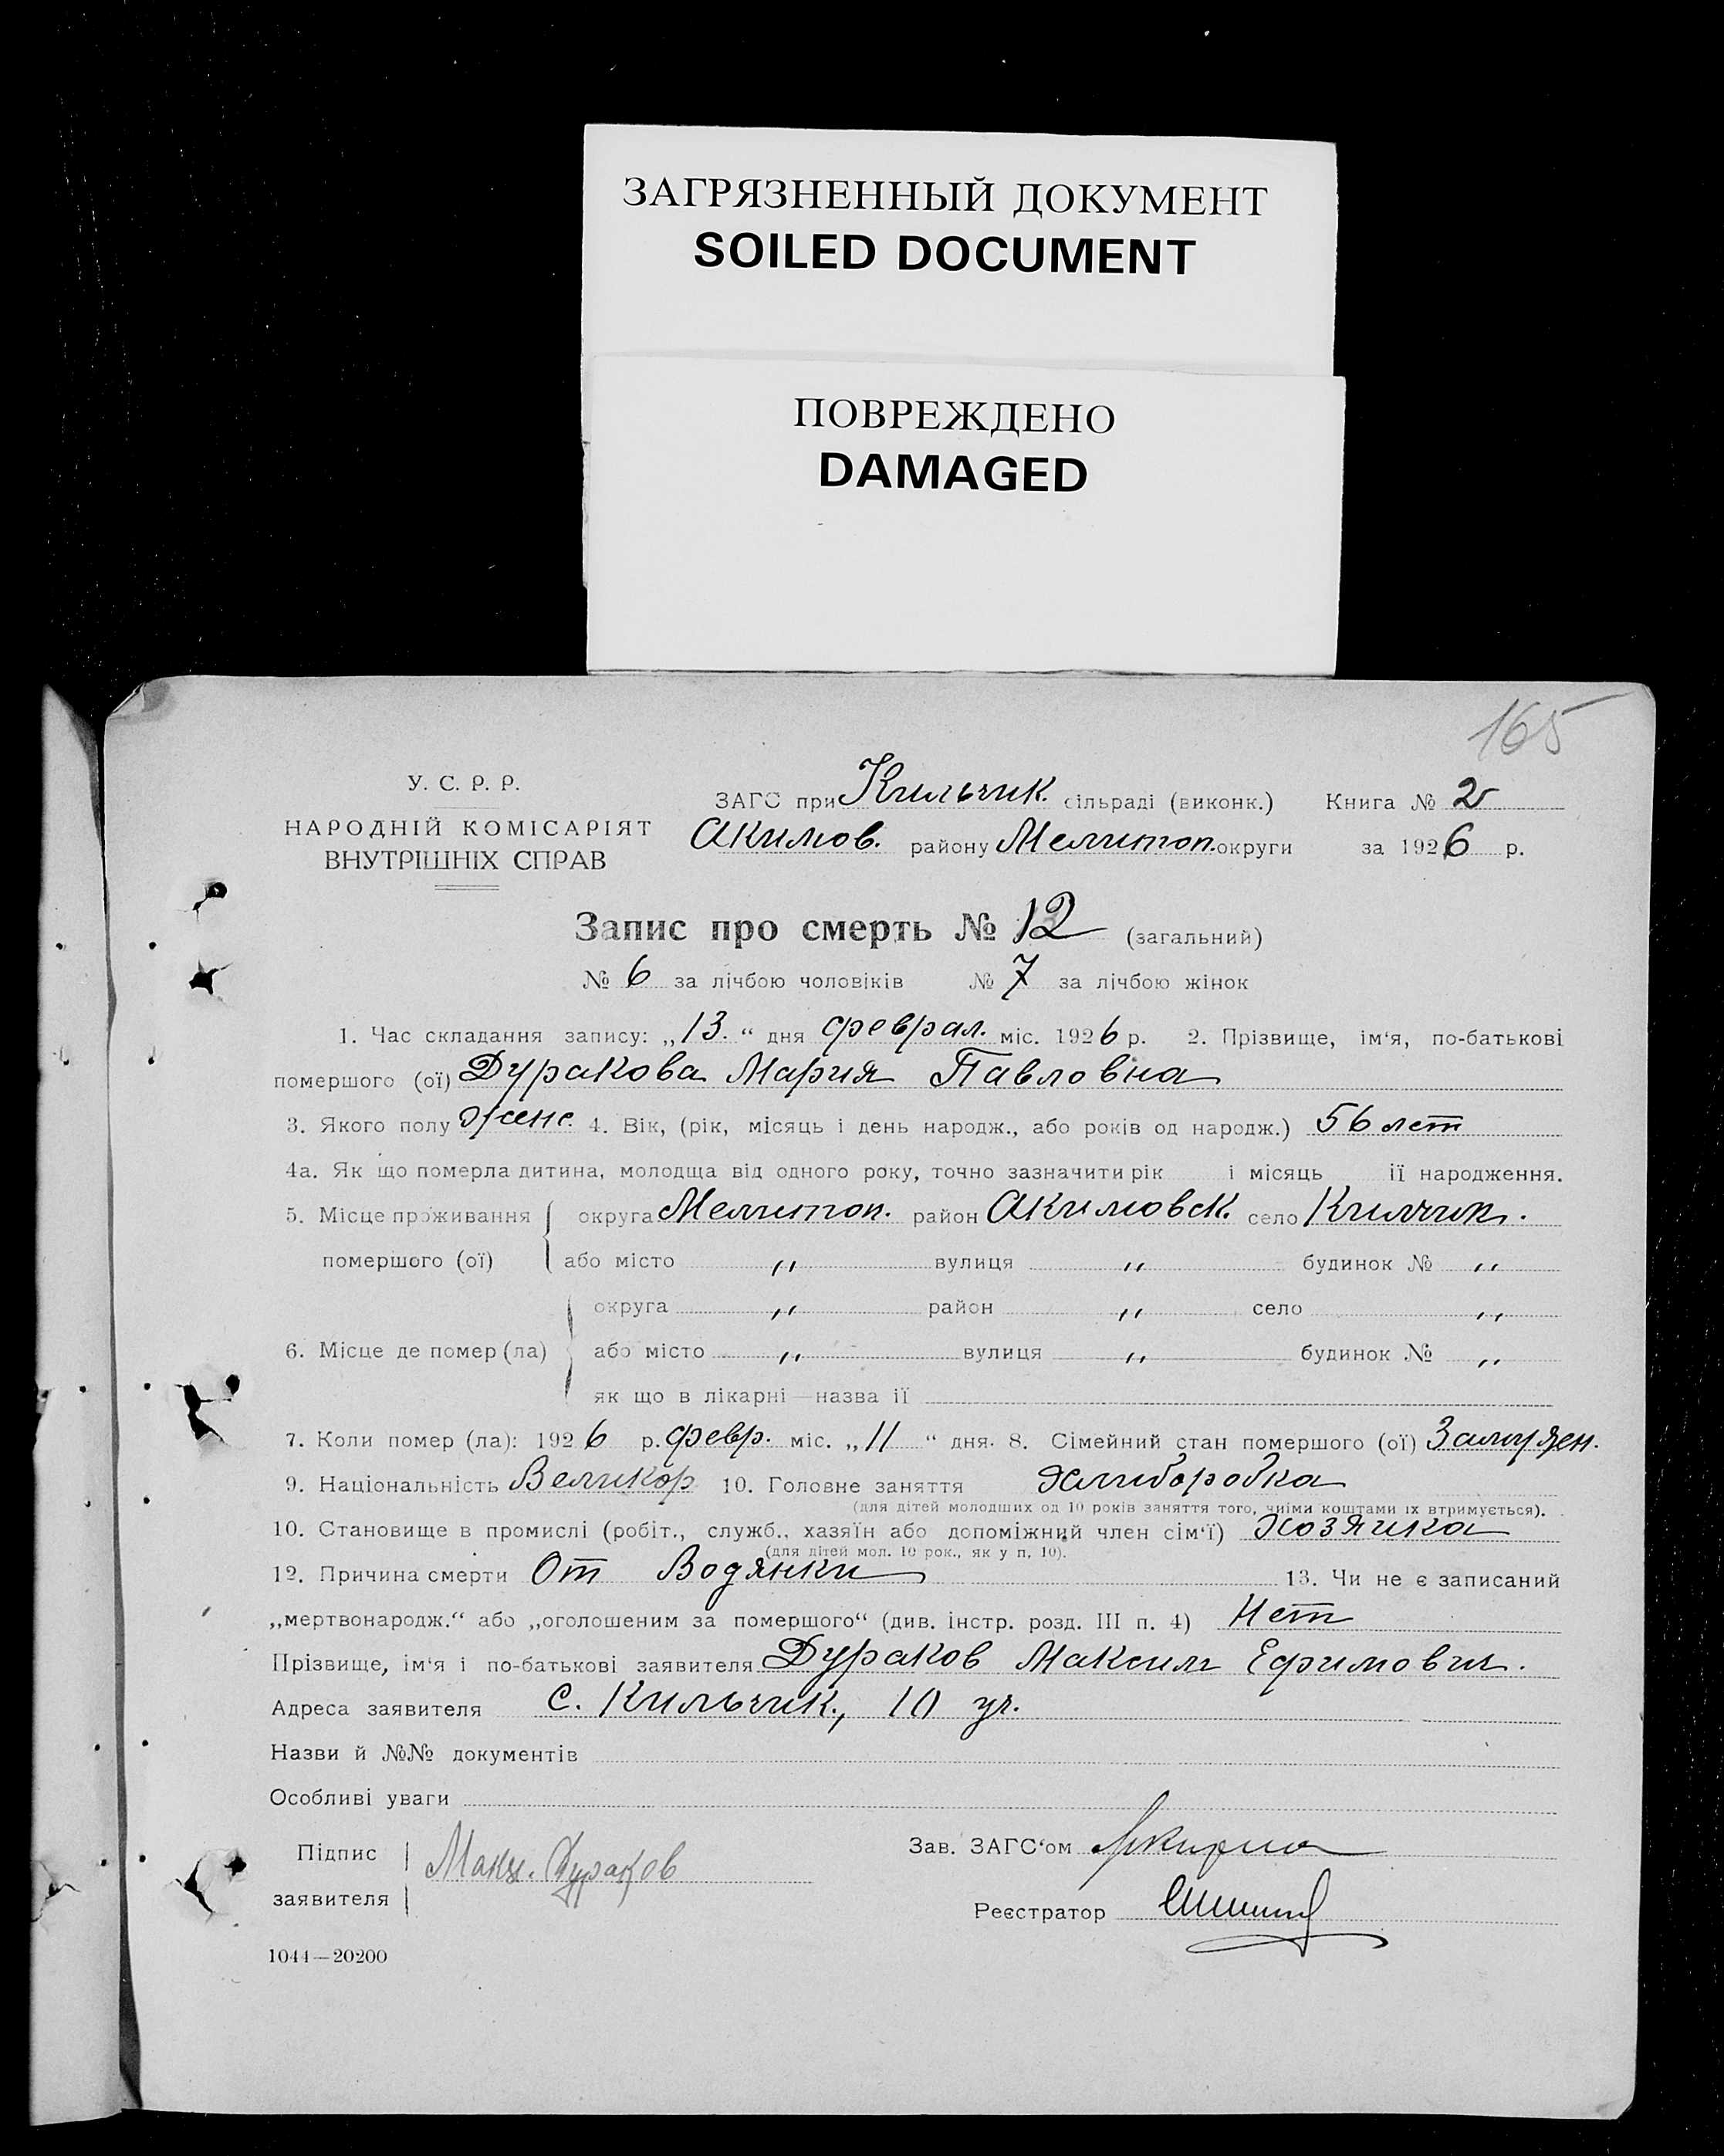 ЗАГРЯЗНЕННЫЙ ДОКУМЕНТ
SOILED DOCUMENT
ПОВРЕЖДЕНО
DAMAGED
165
У. С. Р. Р.
НАРОДНІЙ КОМІСАРІЯТ
ВНУТРІШНІХ СПРАВ
ЗАГС при Кильчик. сільраді (виконк.) Книга № 2
Акимов. району Мелитоп. округи за 1926 р.
Запис про смерть № 12 (загальний)
№ 6 за лічбою чоловіків № 7 за лічбою жінок
1. Час складання запису: „13.“ дня феврал. міс. 1926 р. 2. Прізвище, ім‘я, по-батькові
помершого (ої) Дуракова Мария Павловна
3. Якого полу женс. 4. Вік, (рік, місяць і день народж., або років од народж.) 56 лет
4а. Як що померла дитина, молодща від одного року, точно зазначити рік і місяць її народження.
5. Місце проживання округа Мелитоп. район Акимовск. село Килчик.
помершого (ої) або місто „ вулиця „ будинок № „
округа „ район „ село „
6. Місце де помер (ла) або місто „ вулиця „ будинок № „
як що в лікарні—назва її
7. Коли помер (ла): 1926 р. февр. міс. „11“ дня. 8. Сімейний стан помершого (ої) Замужен.
9. Національність Великор 10. Головне заняття Хлиборобка
(для дітей молодших од 10 років заняття того, чиїми коштами їх втримується).
10. Становище в промислі (робіт., служб., хазяїн або допоміжний член сім‘ї) Хозяйка
(для дітей мол. 10 рок., як у п. 10).
12. Причина смерти От Водянки 13. Чи не є записаний
„мертвонародж.“ або „оголошеним за помершого“ (див. інстр. розд. III п. 4) Нет
Прізвище, ім‘я і по-батькові заявителя Дураков Максим Ефимович.
Адреса заявителя с. Кильчик, 10 уч.
Назви й №№ документів
Особливі уваги
Підпис Макс. Дураков Зав. ЗАГС‘ом
заявителя Реєстратор
1044—20200